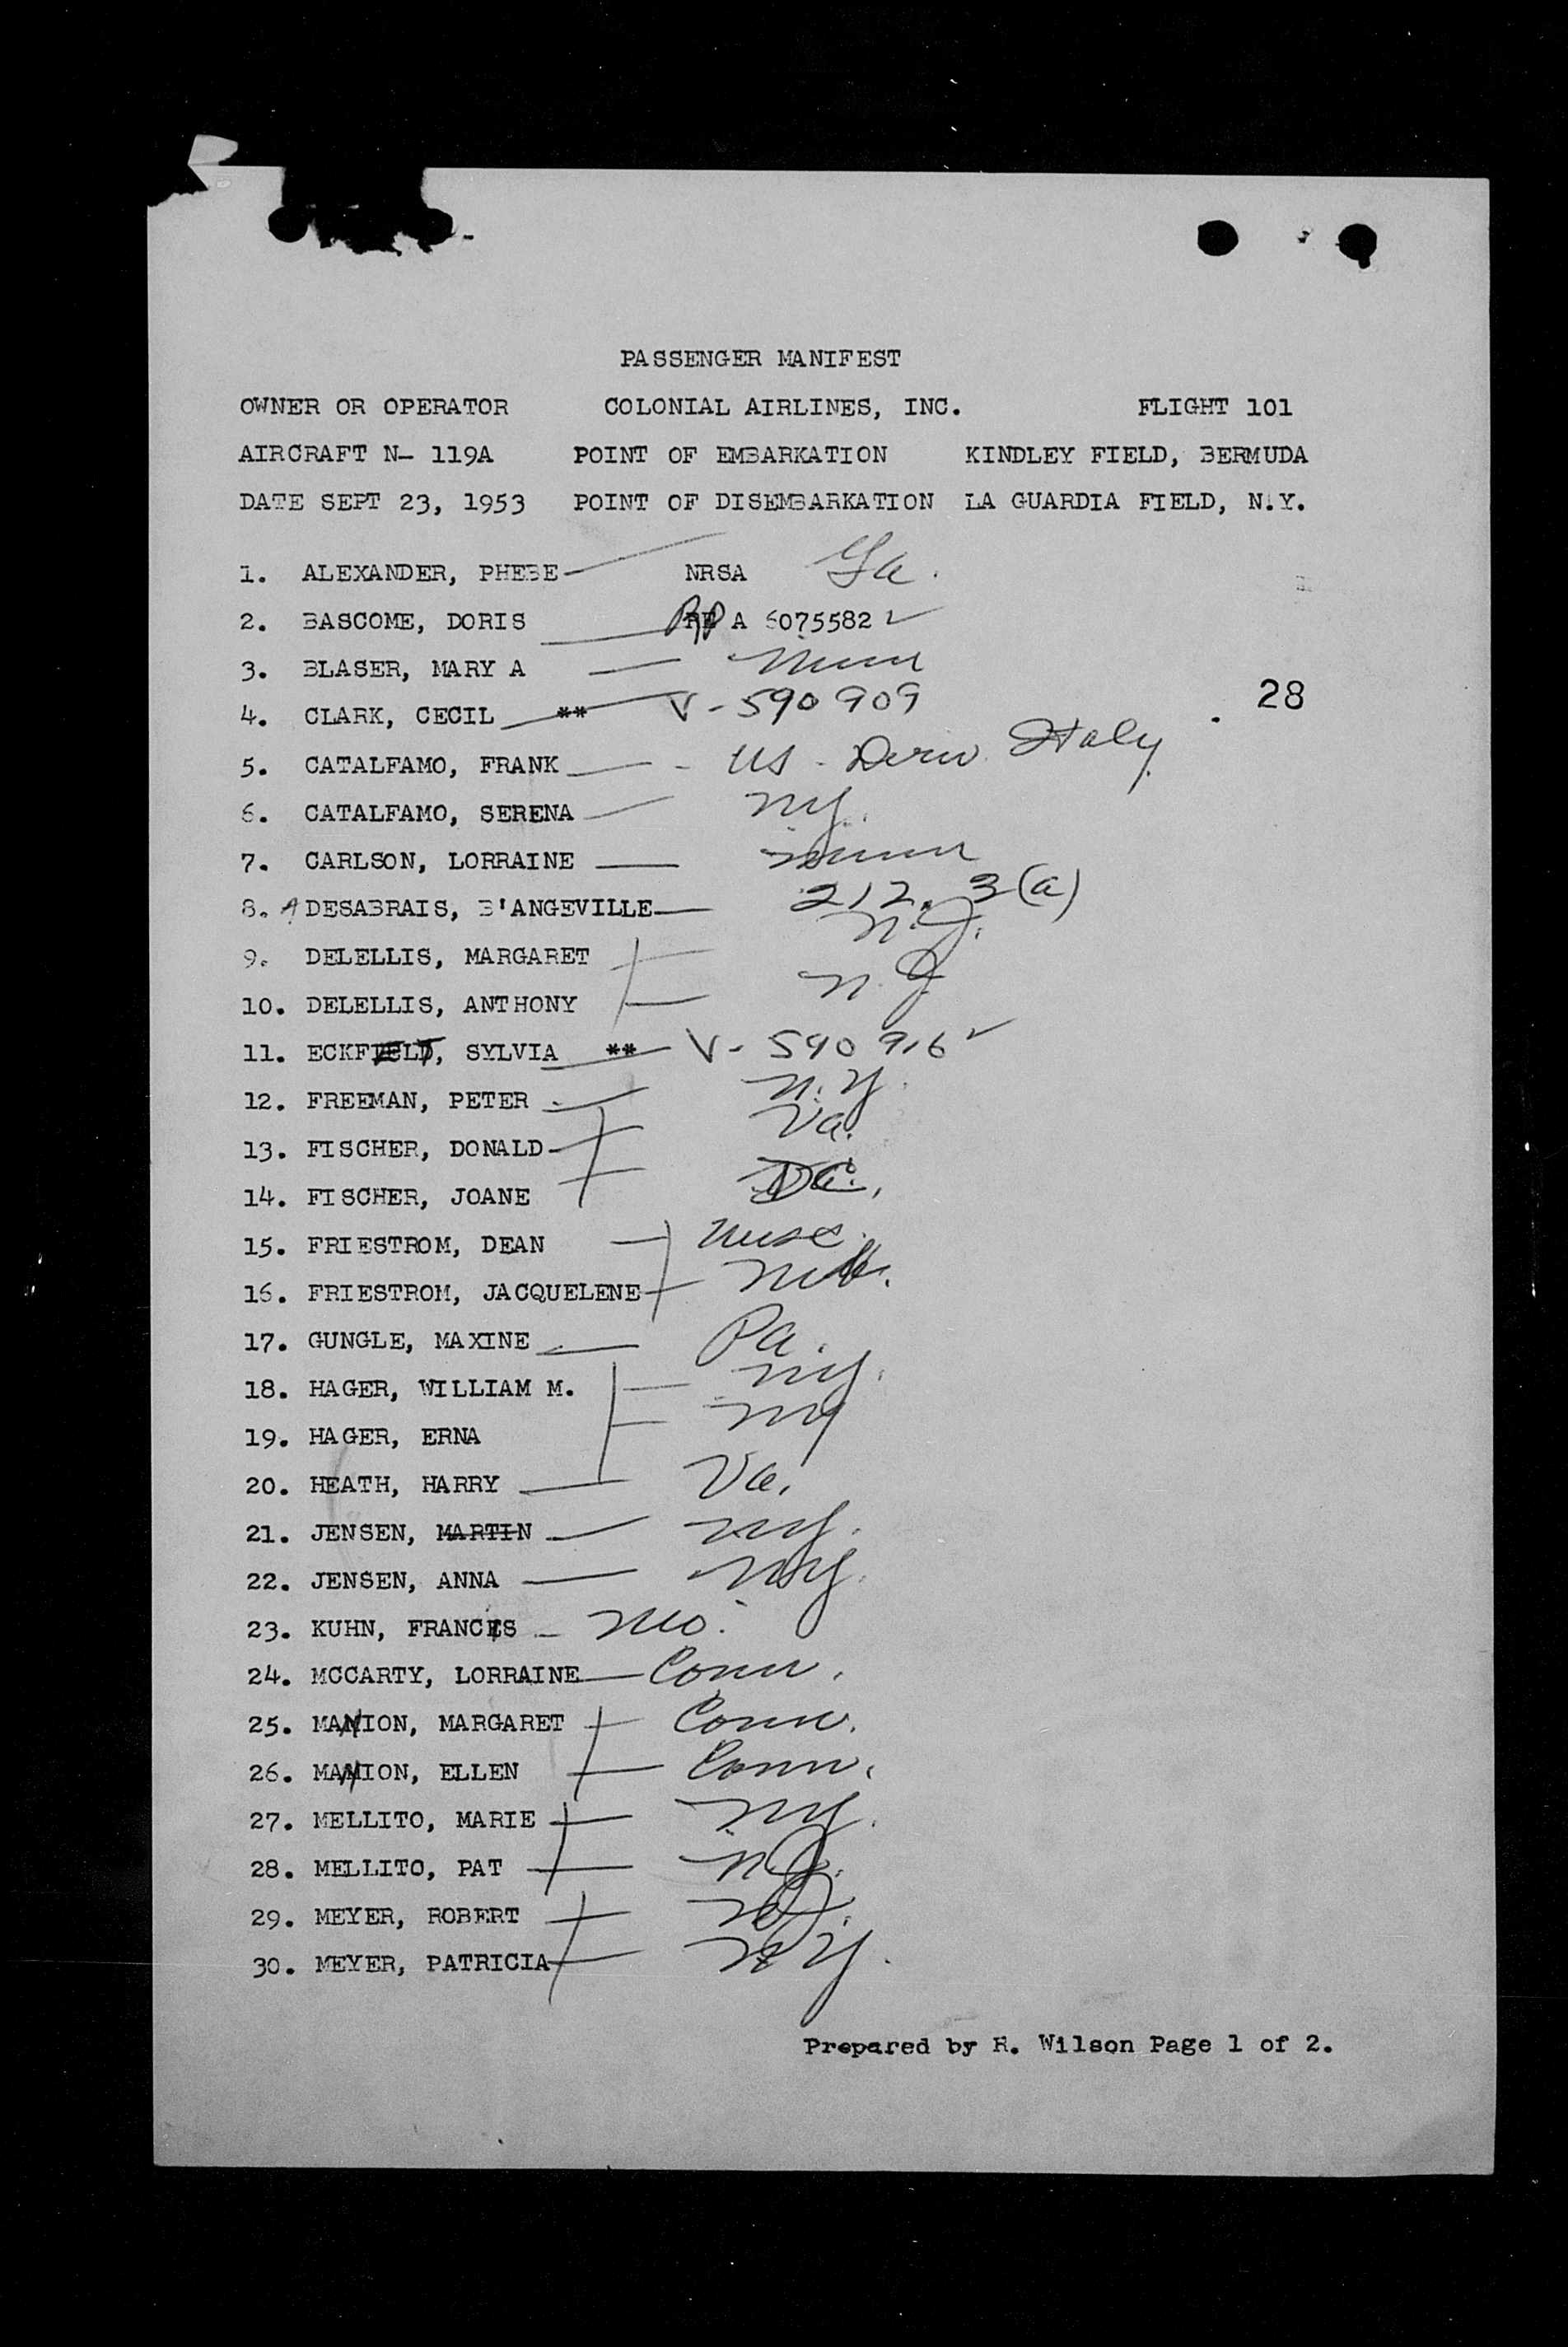 PASSENGER MANIFEST
OWNER OR OPERATOR COLONIAL AIRLINES, INC. FLIGHT 101
AIRCRAFT N- 119A POINT OF EMBARKATION KINDLEY FIELD, BERMUDA
DATE SEPT 23, 1953 POINT OF DISEMBARKATION LA GUARDIA FIELD, N.Y.
1. ALEXANDER, PHEBE NRSA Ga.
2. BASCOME, DORIS RP A 6075582
3. BLASER, MARY A Minn
4. CLARK, CECIL ** V-590909
28
5. CATALFAMO, FRANK US - Deriv. Italy
6. CATALFAMO, SERENA NY.
7. CARLSON, LORRAINE Minn
8. DESABRAIS, B'ANGEVILLE 212.3(a)
9. DELELLIS, MARGARET N.J.
10. DELELLIS, ANTHONY N.J
11. ECKFELD, SYLVIA ** V-590916
12. FREEMAN, PETER N.Y.
13. FISCHER, DONALD Va.
14. FISCHER, JOANE DC.
15. FRIESTROM, DEAN
16. FRIESTROM, JACQUELENE
17. GUNGLE, MAXINE Pa.
18. HAGER, WILLIAM M. NY.
19. HAGER, ERNA NY
20. HEATH, HARRY Va.
21. JENSEN, MARTIN NY.
22. JENSEN, ANNA NY.
23. KUHN, FRANCIS Mo.
24. MCCARTY, LORRAINE Conn.
25. MANION, MARGARET Conn.
26. MANION, ELLEN Conn.
27. MELLITO, MARIE NY.
28. MELLITO, PAT N.J.
29. MEYER, ROBERT NJ.
30. MEYER, PATRICIA NY.
Prepared by R. Wilson Page 1 of 2.